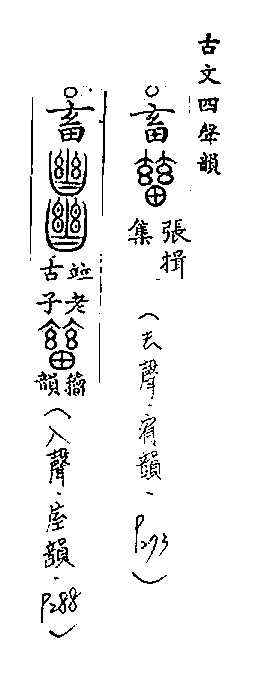 古文四聲韻
畜 張揖集(去聲·宥韻·P293)
畜 並古老子 籀韻(入聲·屋韻·P288)